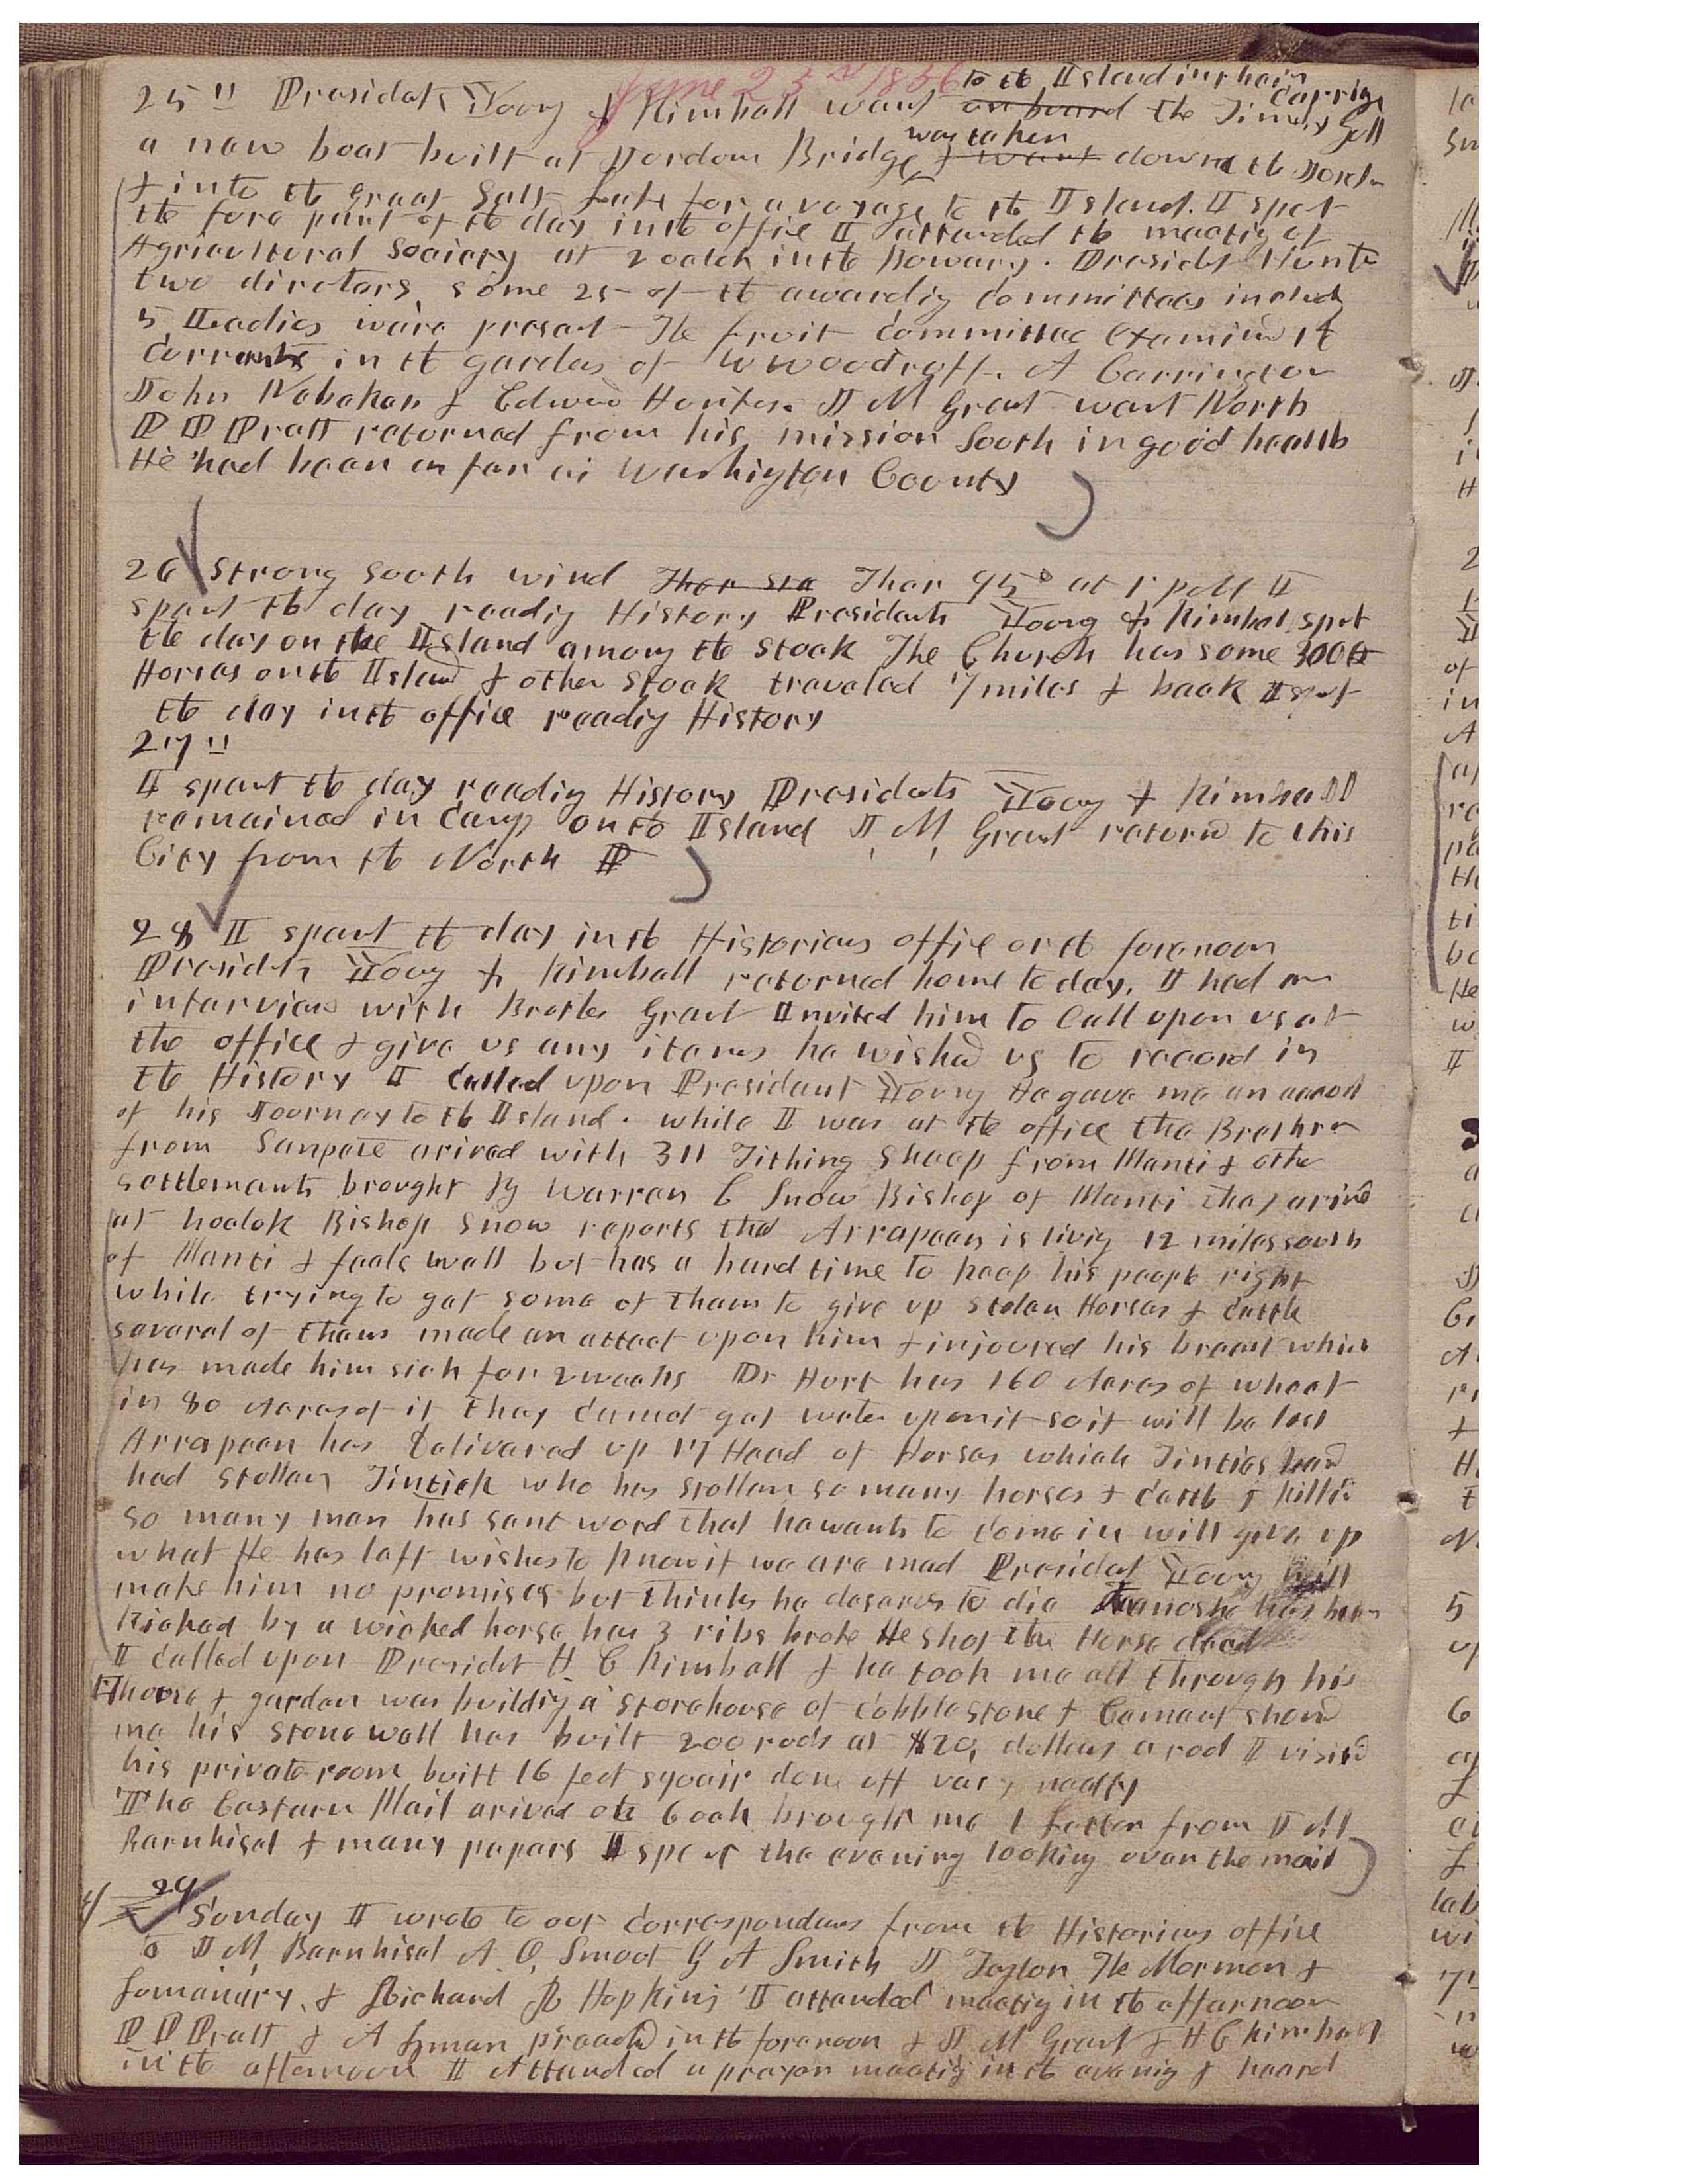 June 23rd 1856
to the Island in their carriage
25th President Young & Kimball want on board the Timely Gull
was taken
a new boat built at Jordon Bridge & want down the Jordan
& into the Great Salt Lake for a voyage to the Island. I spet
the fore part of the day in the office I attended the meetig of
Agricultural Society at 2 oclok in the Bowery. Presidet Hunte
two dirctors, some 25 of the awardig committees includ
5 Ladies ware present The fruit committee examind the
Currants in the gardes of W Woodruff. A Carrington
John Nebeker & Edwin Hunter. J M Grant want North
P P Pratt returned from his mission South in good health
He had been as far as Washington County
26 Strong South wind Ther sta Ther 95° at 1 pm I
spent the day readig History Presidents Young & Kimbal spet
the day on the Island among the stock The Church has some 300
Horses on the Island & other stock traveled 7 miles & back I spet
the day in the office readig History
27th
I spent the day readig History Presidets Young & Kimball
remained in camp on the Island J. M. Grant returnd to this
City from the North P
28 I spent the day in the Historians office or the forenoon
Presidets Young & Kimball returned home to day. I had an
interview with Brother Grant Invited him to Call upon us at
the office & give us any items he wished us to record in
the History I called upon President Young He gave me an account
of his Journey to the Island. while I was at the office the Brethren
from Sanpete arived with 311 Tithing Sheep from Manti & other
settlements brought by Warren C Snow Bishop of Manti they arivd
at oclok Bishop Snow reports that Arrapeen is livig 12 miles south
of Manti & feels well but has a hard time to keep his people right
while trying to get some of them to give up stolen Horses & cattle
several of them made an attact upon him & injoured his breast which
has made him sick for 2 weeks Dr Hurt has 160 Acres of wheat
in 80 Acres of it they cannot get water upon it so it will be lost
Arrapeen has Delivered up 17 Head of Horses which Tintics band
had stollen Tintick who has stollen so many horses & cattle & killed
so many men has sent word that he wants to come in will give up
what He has left wishes to know if we are mad Presidet Young will
make him no promises but thinks he deserves to die Kanosh has been
Kicked by a wicked horse has 3 ribs broke He shot the Horse dead
I called upon Presidet H C Kimball & he took me all through his
House & garden was buildig a storehouse of cobblestone & Cement showd
me his stone wall has built 200 rods at $20, dollars a rod I visitd
his private room built 16 feet squair done off very neatly
The Eastern Mail arived at 6 ock brought me 1 Letter from J M
Barnhisel & many papers I spent the evening looking over the mail
29
Sunday I wrote to our correspondens from the Historians office
to J M, Barnhisel A. O, Smoot G A Smith J Taylor The Mormon &
Lumanary, & Richard B Hopkins I attended meetig in the afternoon
P P Pratt & A Lyman preachd in the forenoon & J M Grant & H C Kimball
in the afternoon I Attended a prayer meetig in the evenig & heard